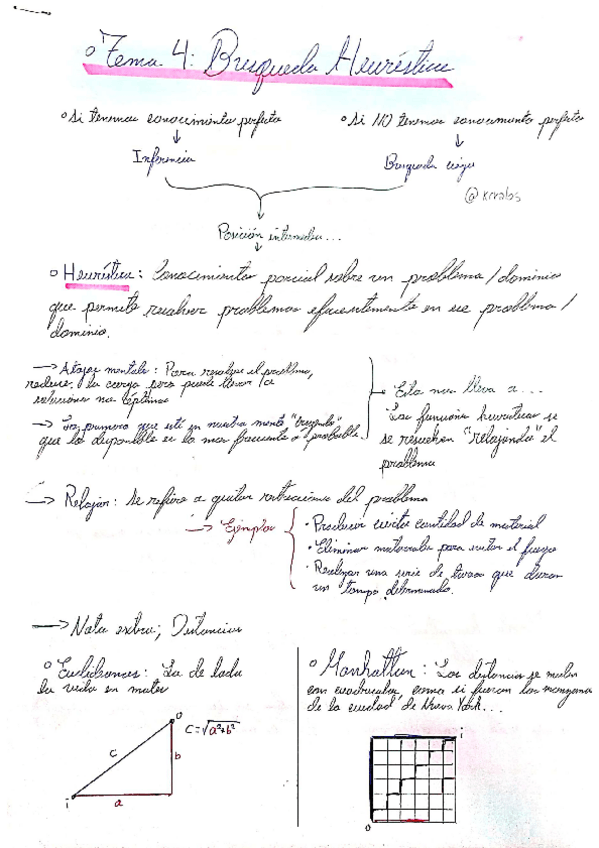 ° Tema 4: Búsqueda Heurística
° Si tenemos conocimiento perfecto
° Si NO tenemos conocimiento perfecto
↓
↓
Inferencia
Búsqueda ciega
@krralos
Posición intermedia...
° Heurística: Conocimiento parcial sobre un problema / dominio
que permite resolver problemas eficientemente en ese problema /
dominio.
→ Atajos mentales: Para resolver el problema,
reduce la carga pero puede llevar a
soluciones no óptimas
→ primero que esté en nuestra mente "creyendo"
que lo disponible es lo mas frecuente o probable
Esto nos lleva a...
Las funciones heurísticas se
se resuelven "relajando" el
problema
→ Relajar: Se refiere a quitar restricciones del problema
→ Ejemplos
· Producir cierta cantidad de material
· Eliminar materiales para evitar el fuego
· Realizar una serie de tareas que duran
un tiempo determinado.
→ Nota extra; Distancias
° Euclidianas: La de toda
la vida en mates
° Manhattan: Las distancias se miden
con cuadrículas, como si fueran las manzanas
de la ciudad de Nueva York...
o
C=√a²+b²
c
b
i
a
i
o